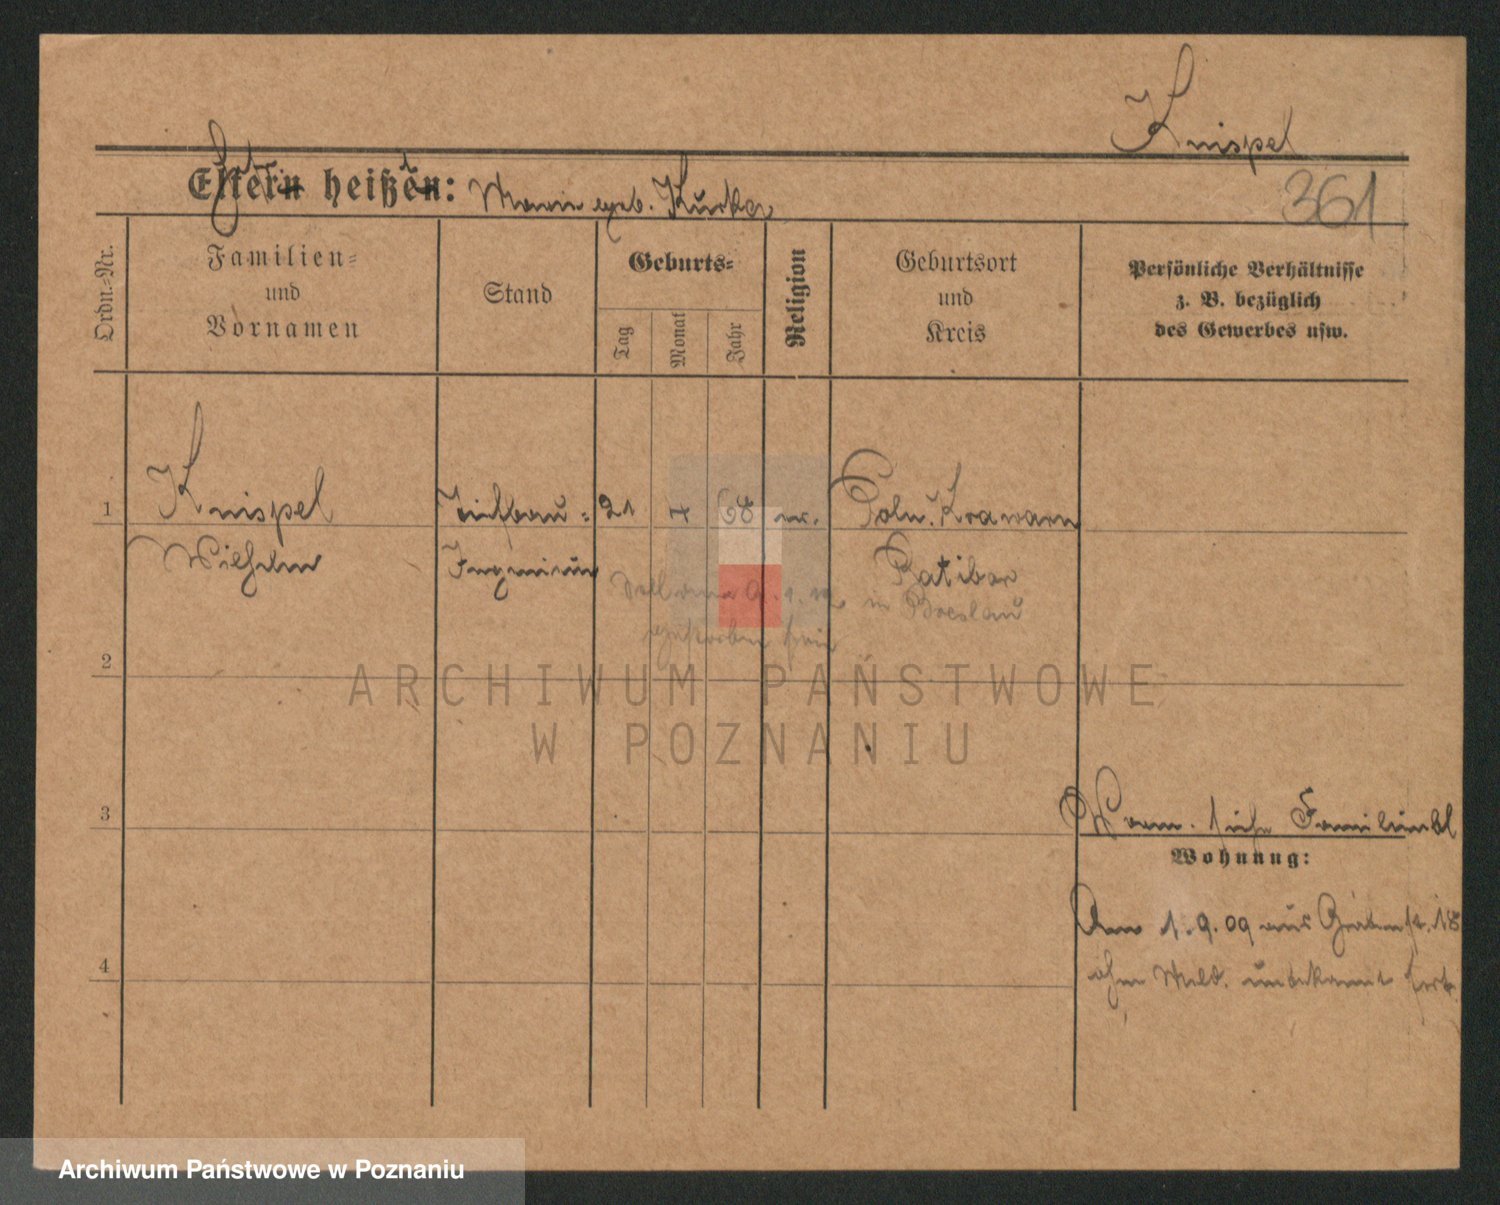 Knispel
Eltern heißen: Marie geb. Kurka
361
Ordn.-Nr.
Familien-
und
Vornamen
Stand
Geburts-
Tag
Monat
Jahr
Religion
Geburtsort
und
Kreis
Persönliche Verhältnisse
z. B. bezüglich
des Gewerbes usw.
1
Knispel
Wilhelm
Tiefbau-
Ingenieur
21
4
68
Poln. Krawarn
Ratibor
Soll am in Breslau
gestorben sein
2
ARCHIWUM PAŃSTWOWE
W POZNANIU
3
Verm. siehe Familienbl
Wohnung:
4
Am 1.9.09 aus 18
ohne Meld. unbekannt fort.
Archiwum Państwowe w Poznaniu